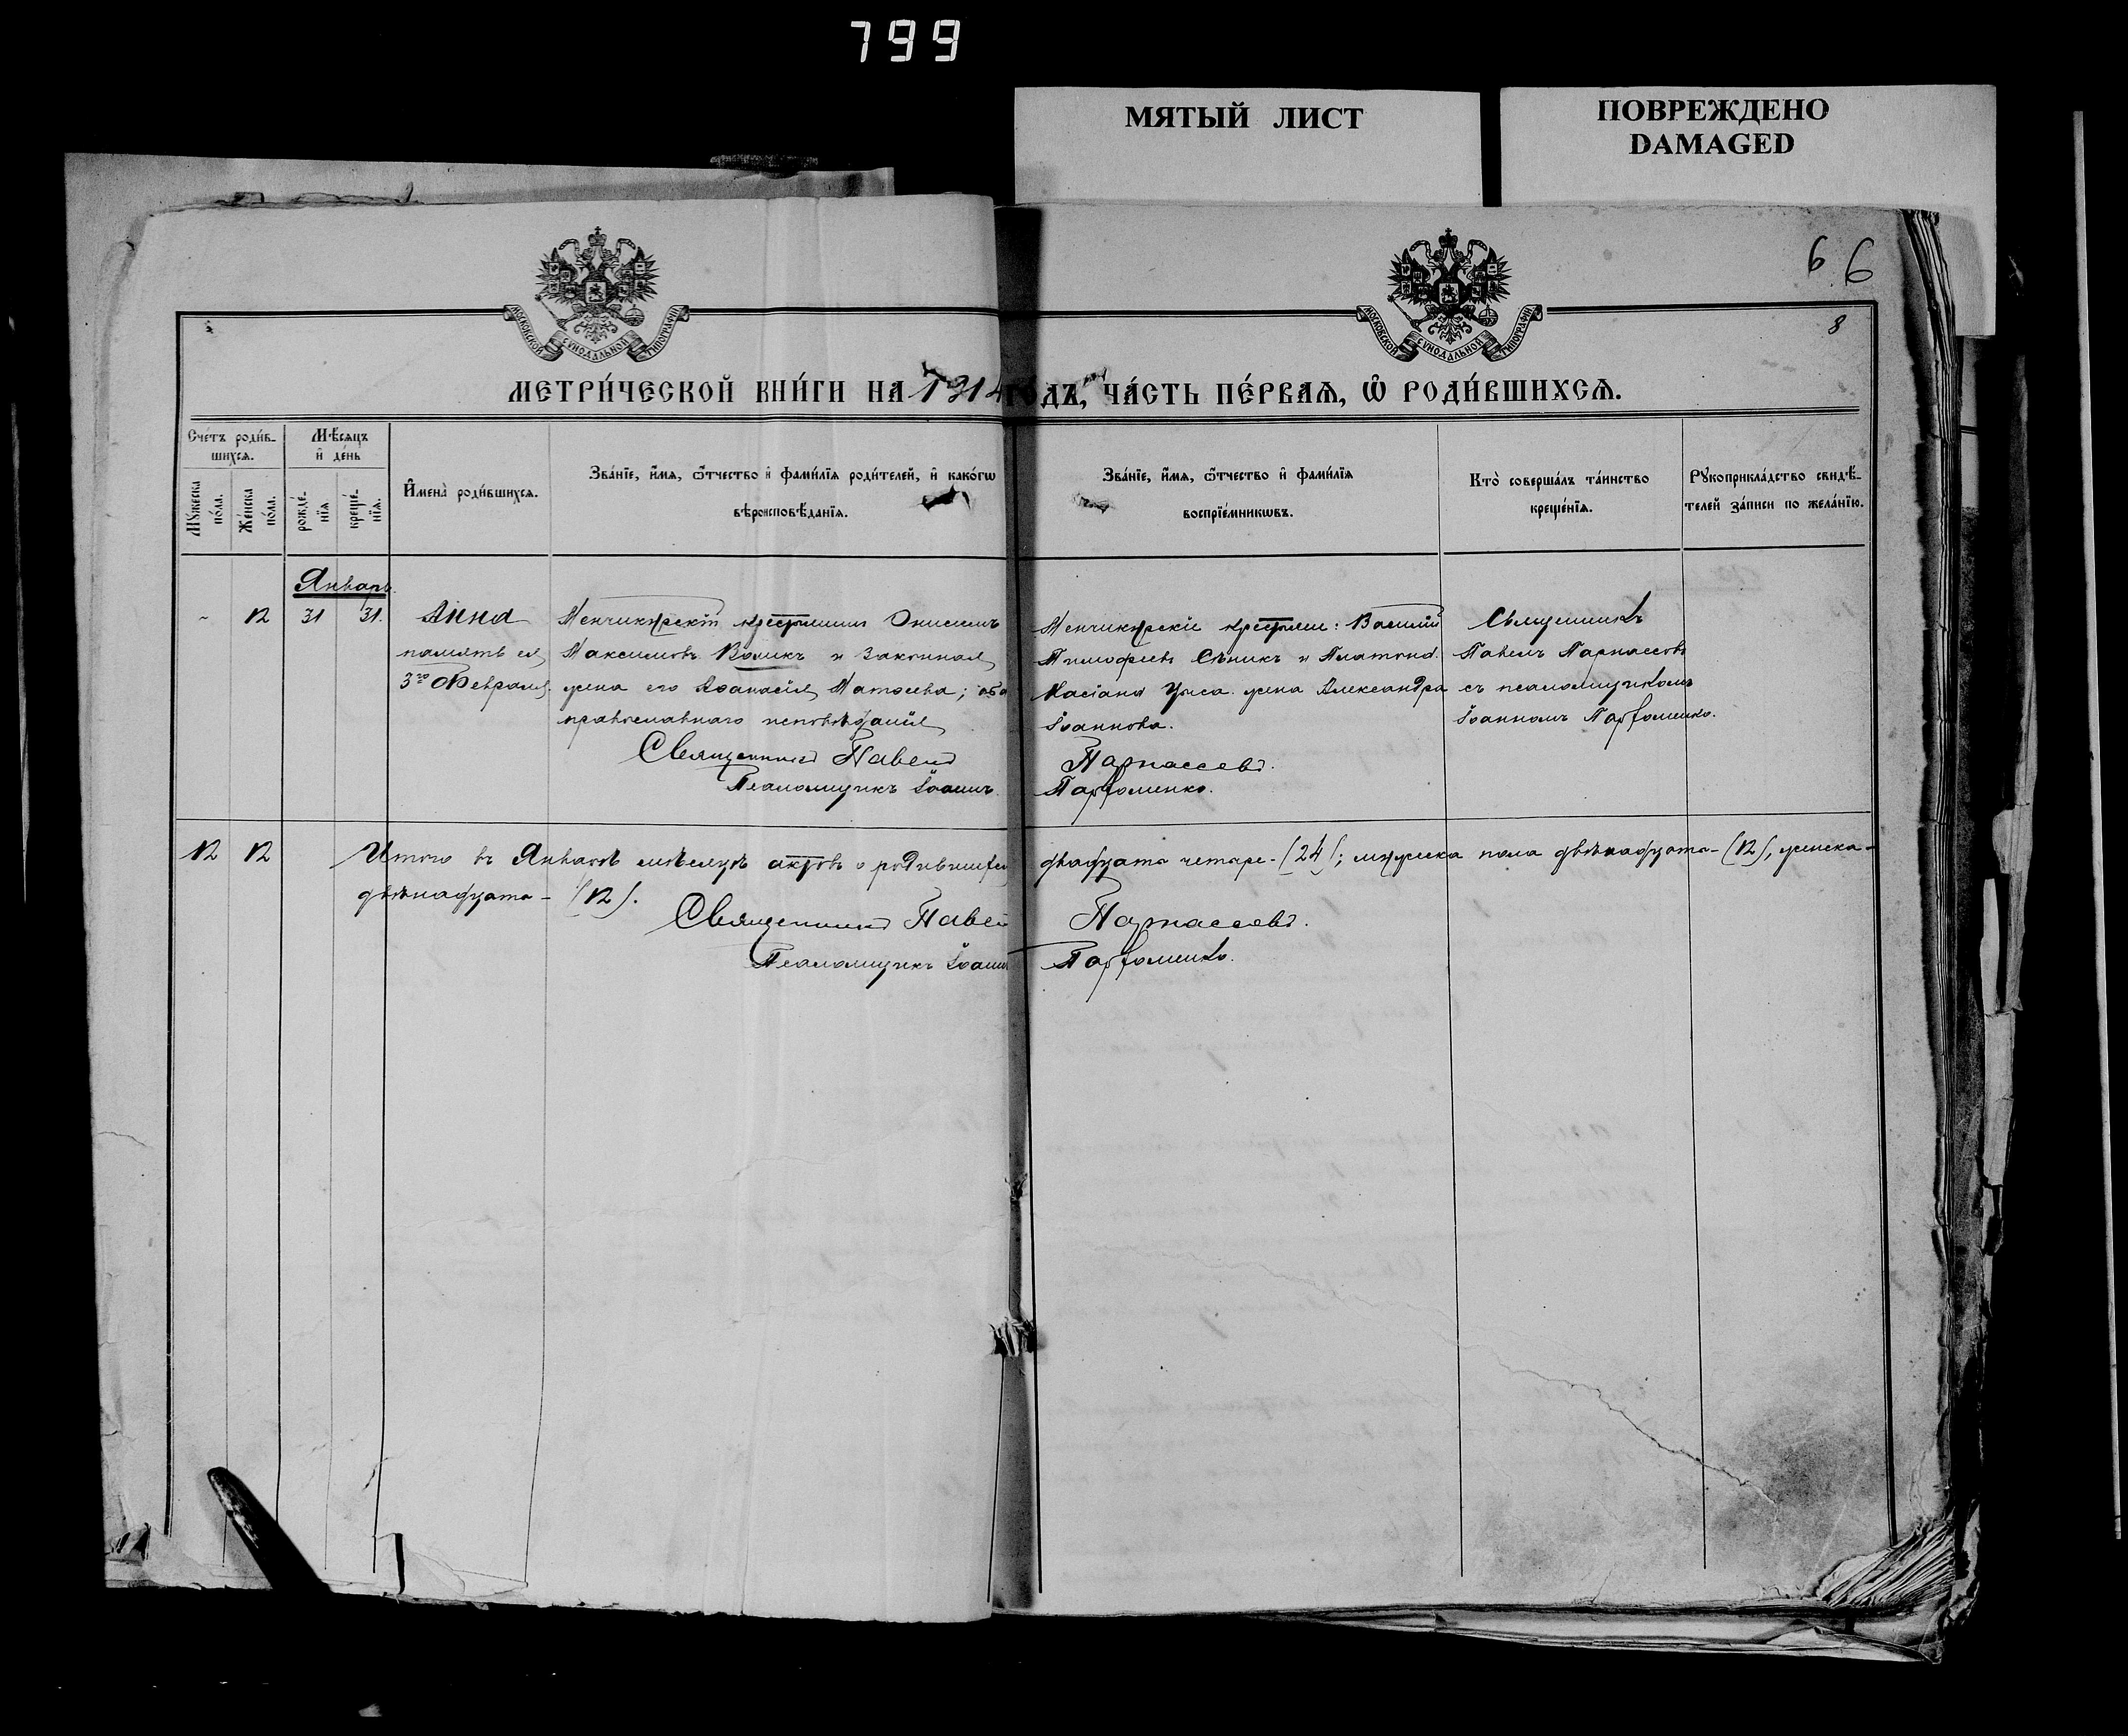 799
МЯТЫЙ ЛИСТ
ПОВРЕЖДЕНО
DAMAGED
6 6
8
МОСКОВСКОЙ СѴНОДАЛЬНОЙ ТИПОГРАФІИ
МОСКОВСКОЙ СѴНОДАЛЬНОЙ ТИПОГРАФІИ
МЕТРИ́ЧЕСКОЙ КНИ́ГИ НА 1914 ГО́ДЪ, ЧА́СТЬ ПЕ́РВАѦ, Ѡ҆ РОДИ́ВШИХСѦ.
Сче́тъ роди́в-
шихсѧ.
Мѣ́сѧцъ
и҆ де́нь
Мꙋ́жеска по́ла.
Же́нска по́ла.
рожде́-
нїѧ
креще́-
нїѧ.
И҆мена̀ роди́вшихсѧ.
Зва́нїе, и҆́мѧ, ѻ҆́тчество и҆ фами́лїѧ роди́телей, и҆ како́гѡ
вѣроисповѣ́данїѧ.
Зва́нїе, и҆́мѧ, ѻ҆́тчество и҆ фами́лїѧ
воспрїе́мникѡвъ.
Кто̀ соверша́лъ та́инство
креще́нїѧ.
Рꙋкоприкла́дство свидѣ́-
телей за́писи по жела́нїю.
Январь.
- 12 31 31.
Анна
память ея
3го Февраля.
Менчикурскій крестьянинъ Онисимъ
Максимовъ Воликъ и законная
жена его Афанасія Матѳеева; оба
православнаго исповѣданія
Священникъ Павелъ Парнассовъ.
Псаломщикъ Іоаннъ Парѳоменко.
Менчикурскіе крестьяне: Василій
Тимофеевъ Сѣникъ и Платона
Касіана жена Александра
Іоаннова.
Священникъ
Павелъ Парнассовъ
съ псаломщикомъ
Іоанномъ Парѳоменко.
12 12 Итого въ Январѣ мѣсяцѣ актовъ о родившихся двадцать четыре - (24); мужеска пола двѣнадцать - (12), женска -
двѣнадцать - (12).
Священникъ Павелъ Парнассовъ.
Псаломщикъ Іоаннъ Парѳоменко.